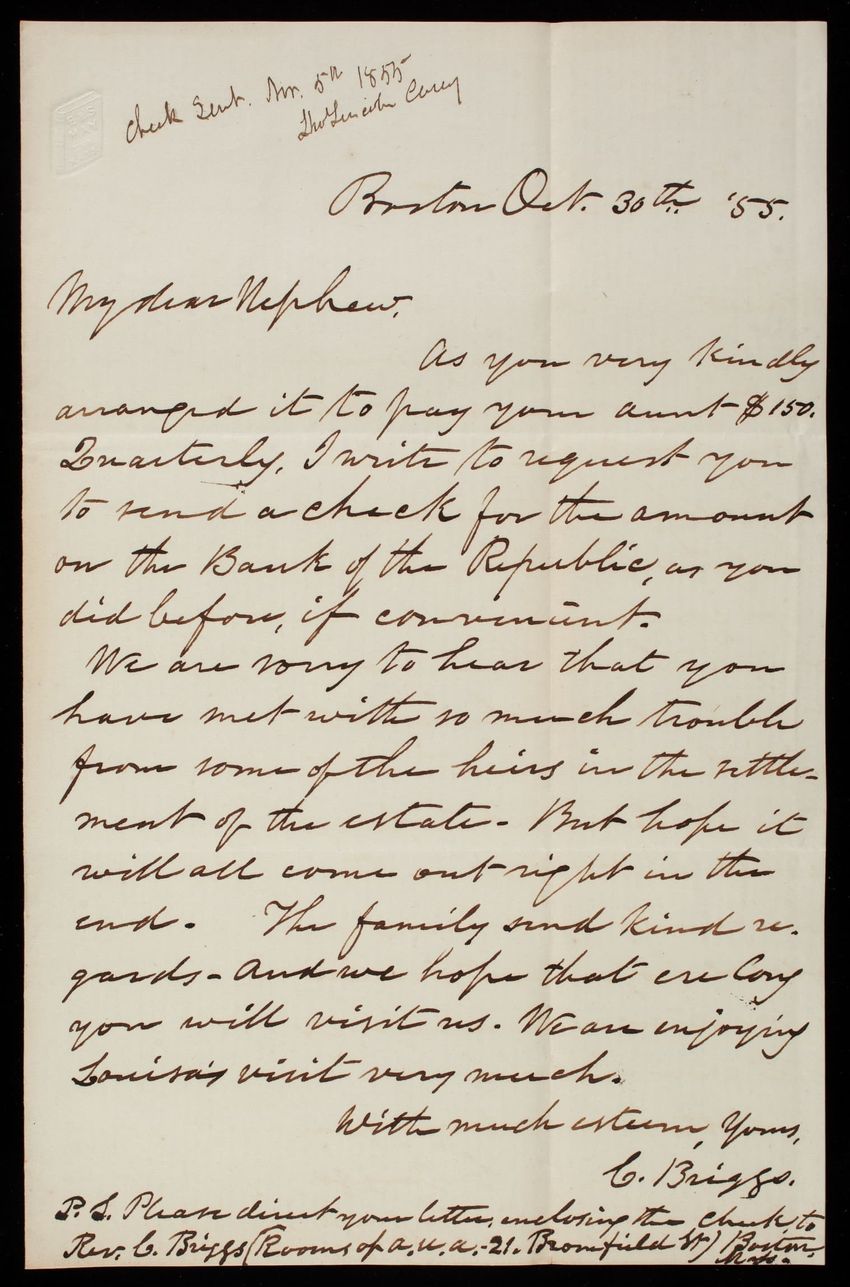 Check Sent. Nov. 5th 1855
Thos Lincoln Casey
Boston Oct. 30th. '55.
My dear Nephew,
As you very kindly
arranged it to pay your aunt $150.
Quarterly, I write to request you
to send a check for the amount
on the Bank of the Republic, as you
did before, if convenient.
We are sorry to hear that you
have met with so much trouble
from some of the heirs in the settle-
ment of the estate - But hope it
will all come out right in the
end. The family send kind re-
gards - And we hope that ere long
you will visit us. We are enjoying
Louisa's visit very much.
With much esteem, Yours,
C. Briggs.
P.S. Please direct your letter, enclosing the check to
Rev. C. Briggs (Rooms of A.U.A. - 21. Bromfield St) Boston.
Mass.